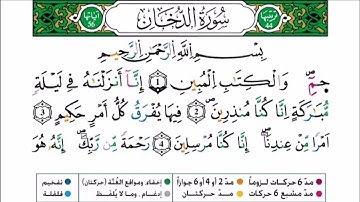 ترتيبها 44 سُورَةُ الدُّخَانِ آياتها 59
بِسْمِ اللَّهِ الرَّحْمَٰنِ الرَّحِيمِ
حمٓ ١ وَالْكِتَابِ الْمُبِينِ ٢ إِنَّا أَنزَلْنَاهُ فِي لَيْلَةٍ
مُّبَارَكَةٍ إِنَّا كُنَّا مُنذِرِينَ ٣ فِيهَا يُفْرَقُ كُلُّ أَمْرٍ حَكِيمٍ ٤
أَمْرًا مِّنْ عِندِنَا إِنَّا كُنَّا مُرْسِلِينَ ٥ رَحْمَةً مِّن رَّبِّكَ إِنَّهُ هُوَ
مد 6 حركات لزوماً مد 2 أو 4 أو 6 جوازاً إخفاء ومواقع الغُنَّة (حركتان) تفخيم
مد مشبع 6 حركات مد حركتان إدغام . وما لا يُلفظ قلقلة